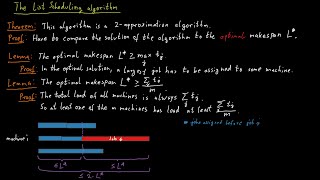 The List Scheduling algorithm
Theorem: This algorithm is a 2-approximation algorithm.
Proof: Have to compare the solution of the algorithm to the optimal makespan L*.
Lemma: The optimal makespan L* ≥ max_j t_j
Proof: In the optimal solution, a largest job has to be assigned to some machine.
Lemma: The optimal makespan L* ≥ Σ_j t_j / m
Proof: The total load of all machines is always Σ_j t_j.
So at least one of the m machines has load at least Σ_j t_j / m.
= jobs assigned before job
machine i
Job
≤ L*
≤ L*
≤ 2·L*